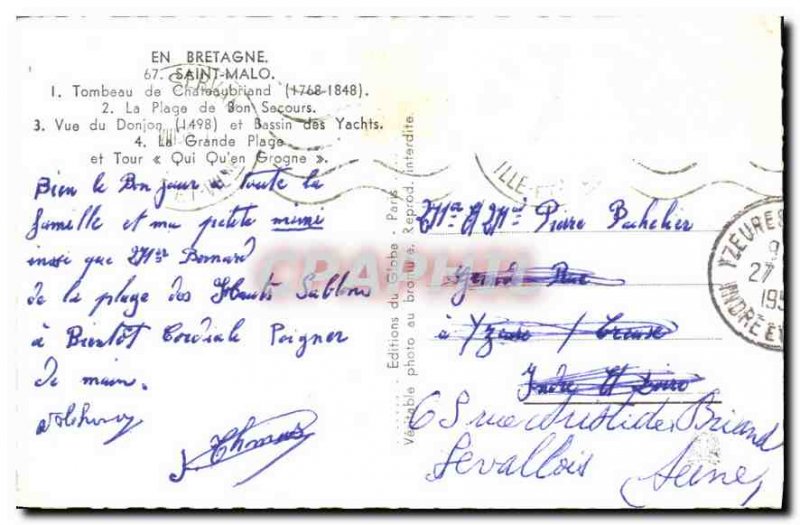 EN BRETAGNE.
67. SAINT-MALO.
1. Tombeau de Chateaubriand (1768-1848).
2. La Plage de Bon Secours.
3. Vue du Donjon (1498) et Bassin des Yachts.
4. La Grande Plage
et Tour « Qui Qu'en Grogne ».
Bien le Bon jour a toute la
famille et ma petite mimi
insi que Mr Bernard
de la plage des Hauts Sablons
à Bientot Cordiale Poigner
de main.
Thomas
Editions du Globe, Paris.
Véritable photo au bromure. Reprod. interdite.
Mr et Mme Pierre Bachelier
Grande Rue
à Yzeures / Creuse
Indre et Loire
68 rue Aristide Briand
Levallois Seine
YZEURES
9
27
195
INDRE ET
ILLE-
CRAPHIL